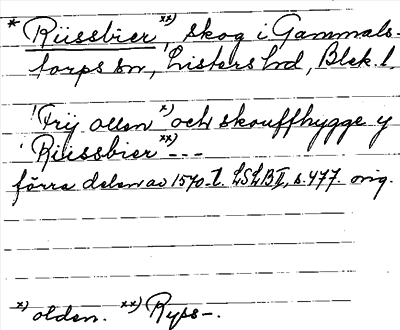 * Rüssbier xx), skog i Gammals-
torps sn, Listers hd, Blek. l.
'Frij ollen x) och skouffhygge y
Rüssbier xx) - - -
förra delen av 1570-t. LSLB II, s. 477. orig.
x) olden. xx) Ryss-.